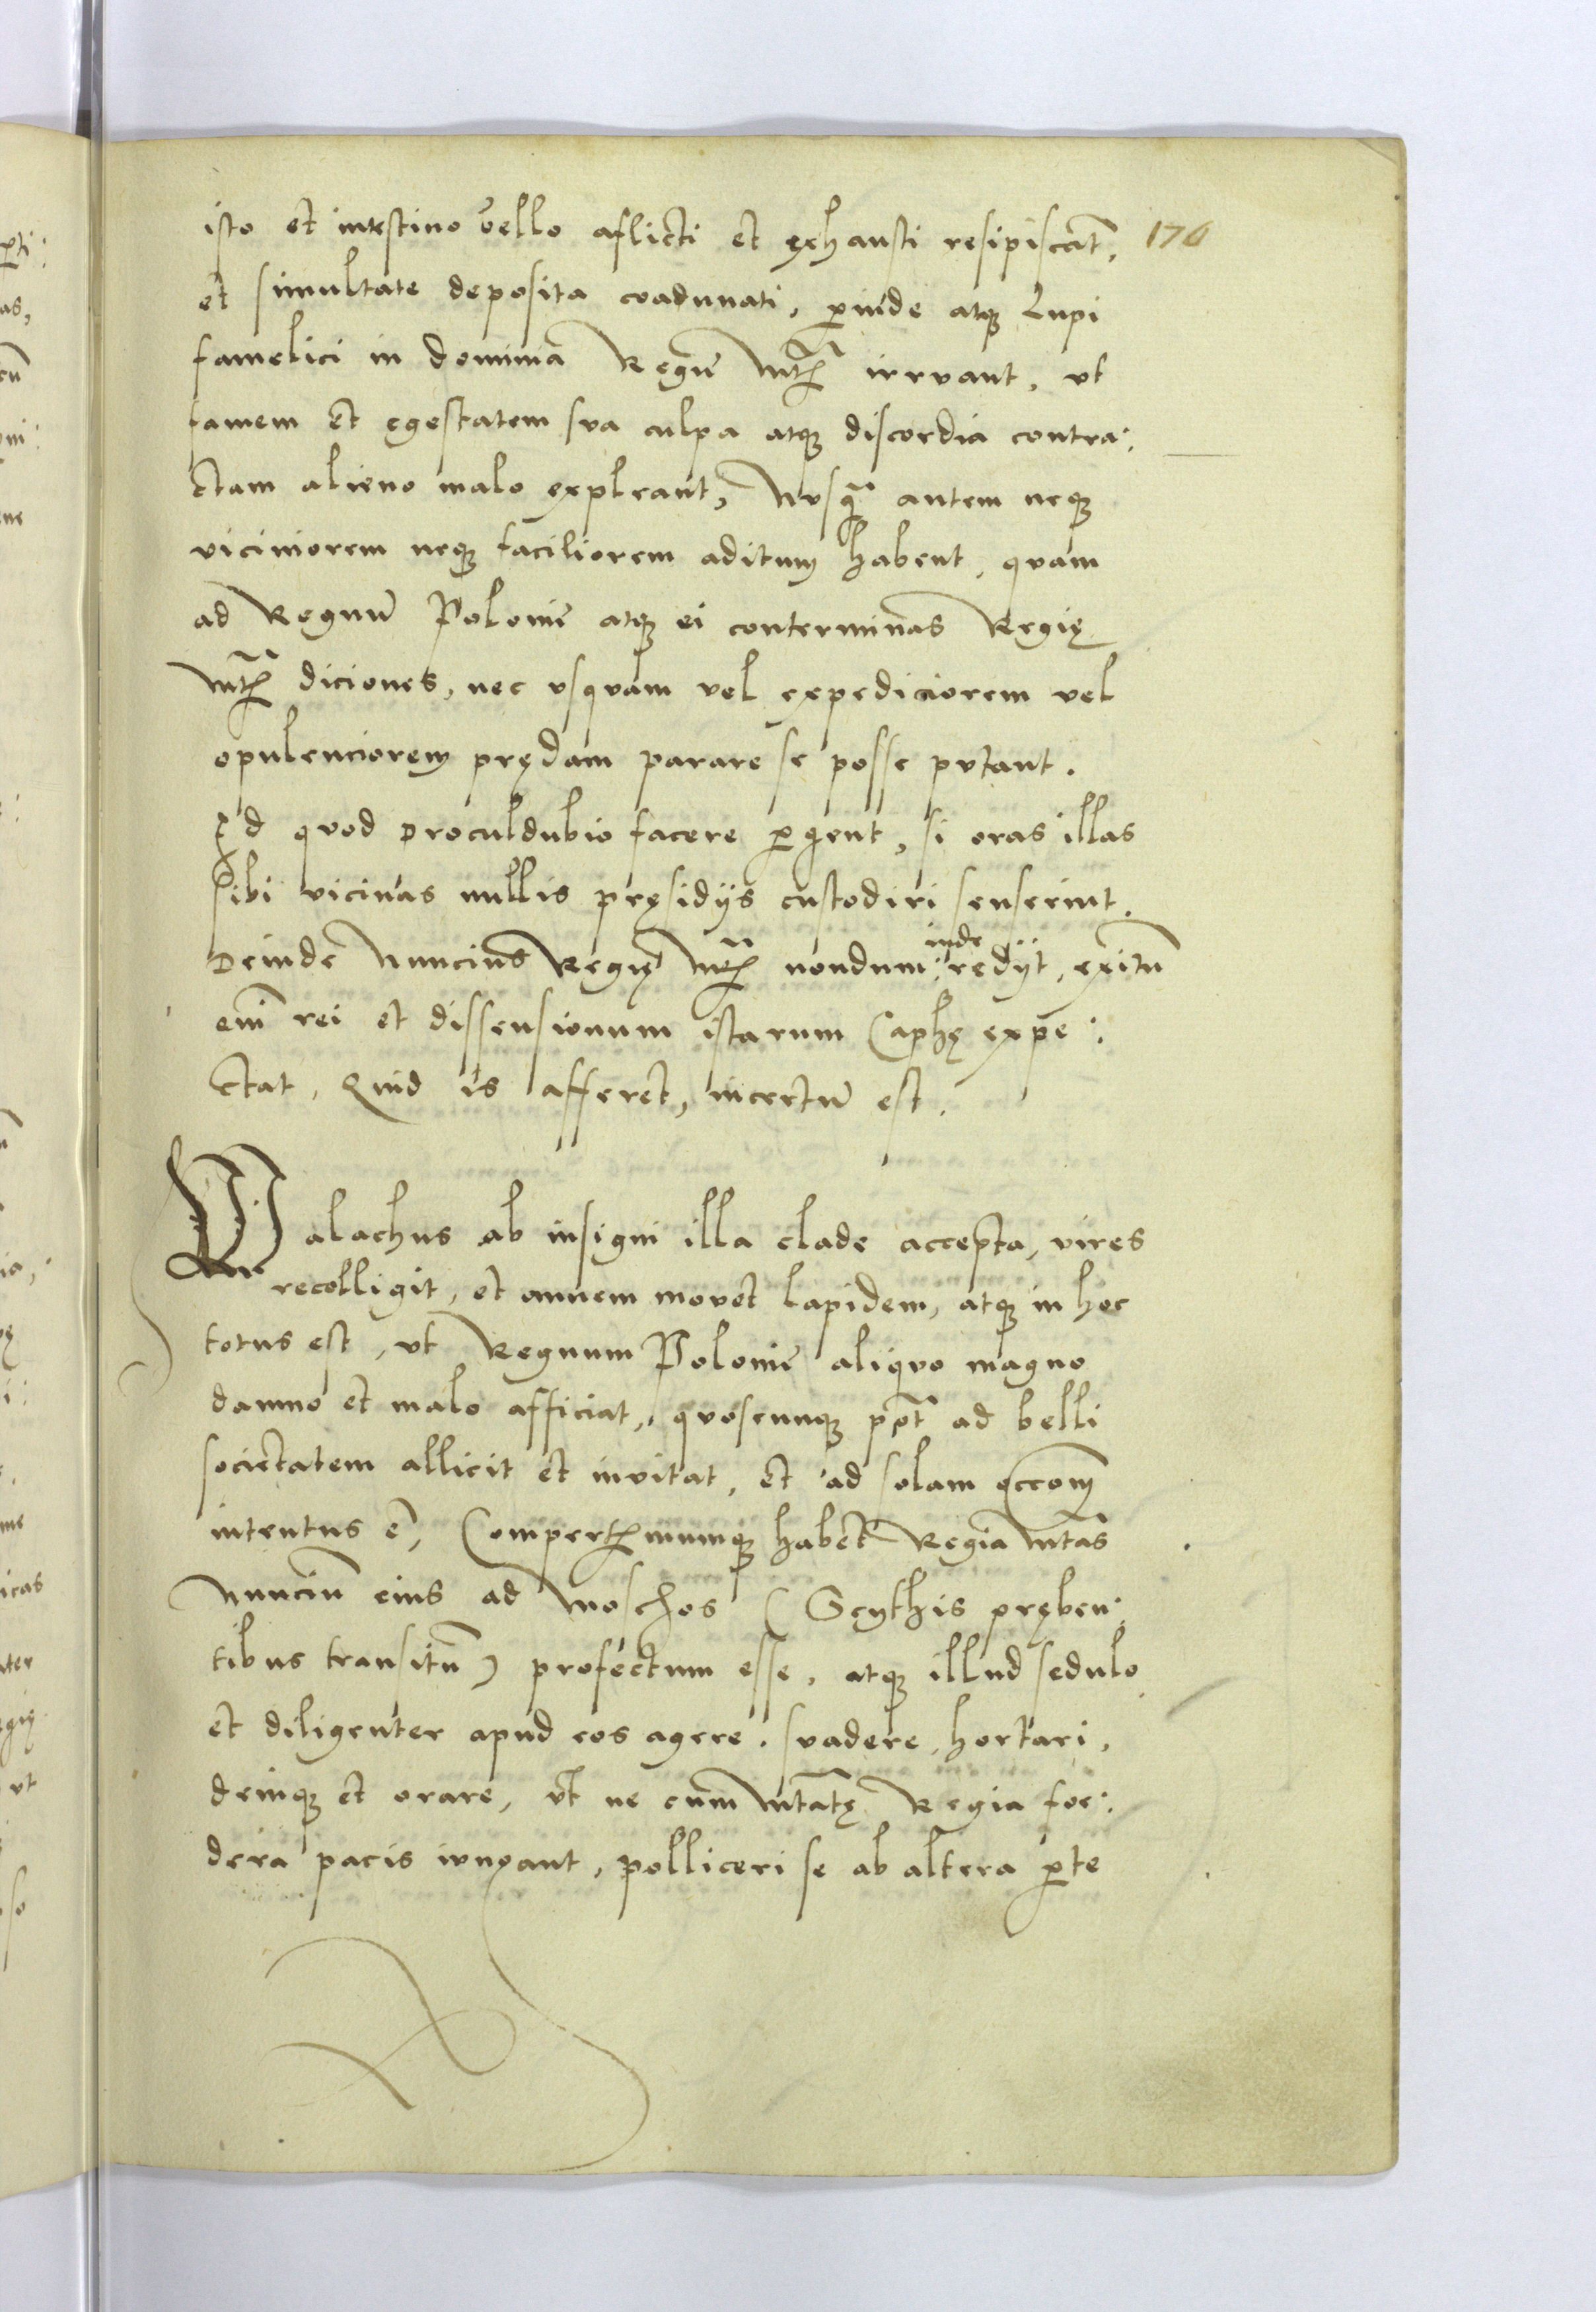 isto et intestino bello aflicti et exhausti resipiscāt, 176
et simultate deposita coadunati, perinde atque Lupi
famelici in dominia Regie Mtis irruant, vt
famem et egestatem sua culpa atque discordia contra:
ctam alieno malo expleant, Nusquam autem neque
viciniorem neque faciliorem aditum habent, quam
ad Regnū Polonie atque ei conterminas Regię
Mtis diciones, nec vsquam vel expediciorem vel
opulenciorem prędam parare se posse putant.
Id quod proculdubio facere pergent, si oras illas
sibi vicinas nullis pręsidijs custodiri senserint.
Deinde Nuncius Regię Mtis nondum inde redijt, exitū
eni rei et dissensionum istarum Caphę expe:
ctat, Quid is afferet, incertū est.
Walachus ab insigni illa clade accepta, vires
recolligit, et omnem movet lapidem, atque in hoc
totus est, vt Regnum Polonie aliquo magno
damno et malo afficiat, quoscunque pōt ad belli
societatem allicit et invitat, et ad solam occōnem
intentus ē, Compertissimumque habet Regia Mtas
Nunciū eius ad Moschos (Scythis pręben:
tibus transitū) profectum esse, atque illud sedulo
et diligenter apud eos agere, suadere, hortari,
denique et orare, vt ne cum Mtatę Regia foe:
dera pacis iungant, polliceri se ab altera parte